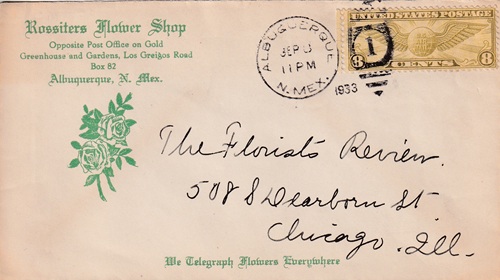 Rossiters Flower Shop
Opposite Post Office on Gold
Greenhouse and Gardens, Los Greigos Road
Box 82
Albuquerque, N. Mex.
ALBUQUERQUE
11 PM
N. MEX.
1933
1
UNITED STATES POSTAGE
8 CENTS 8
The Florists Review.
508 S Dearborn St
Chicago. Ill.
We Telegraph Flowers Everywhere